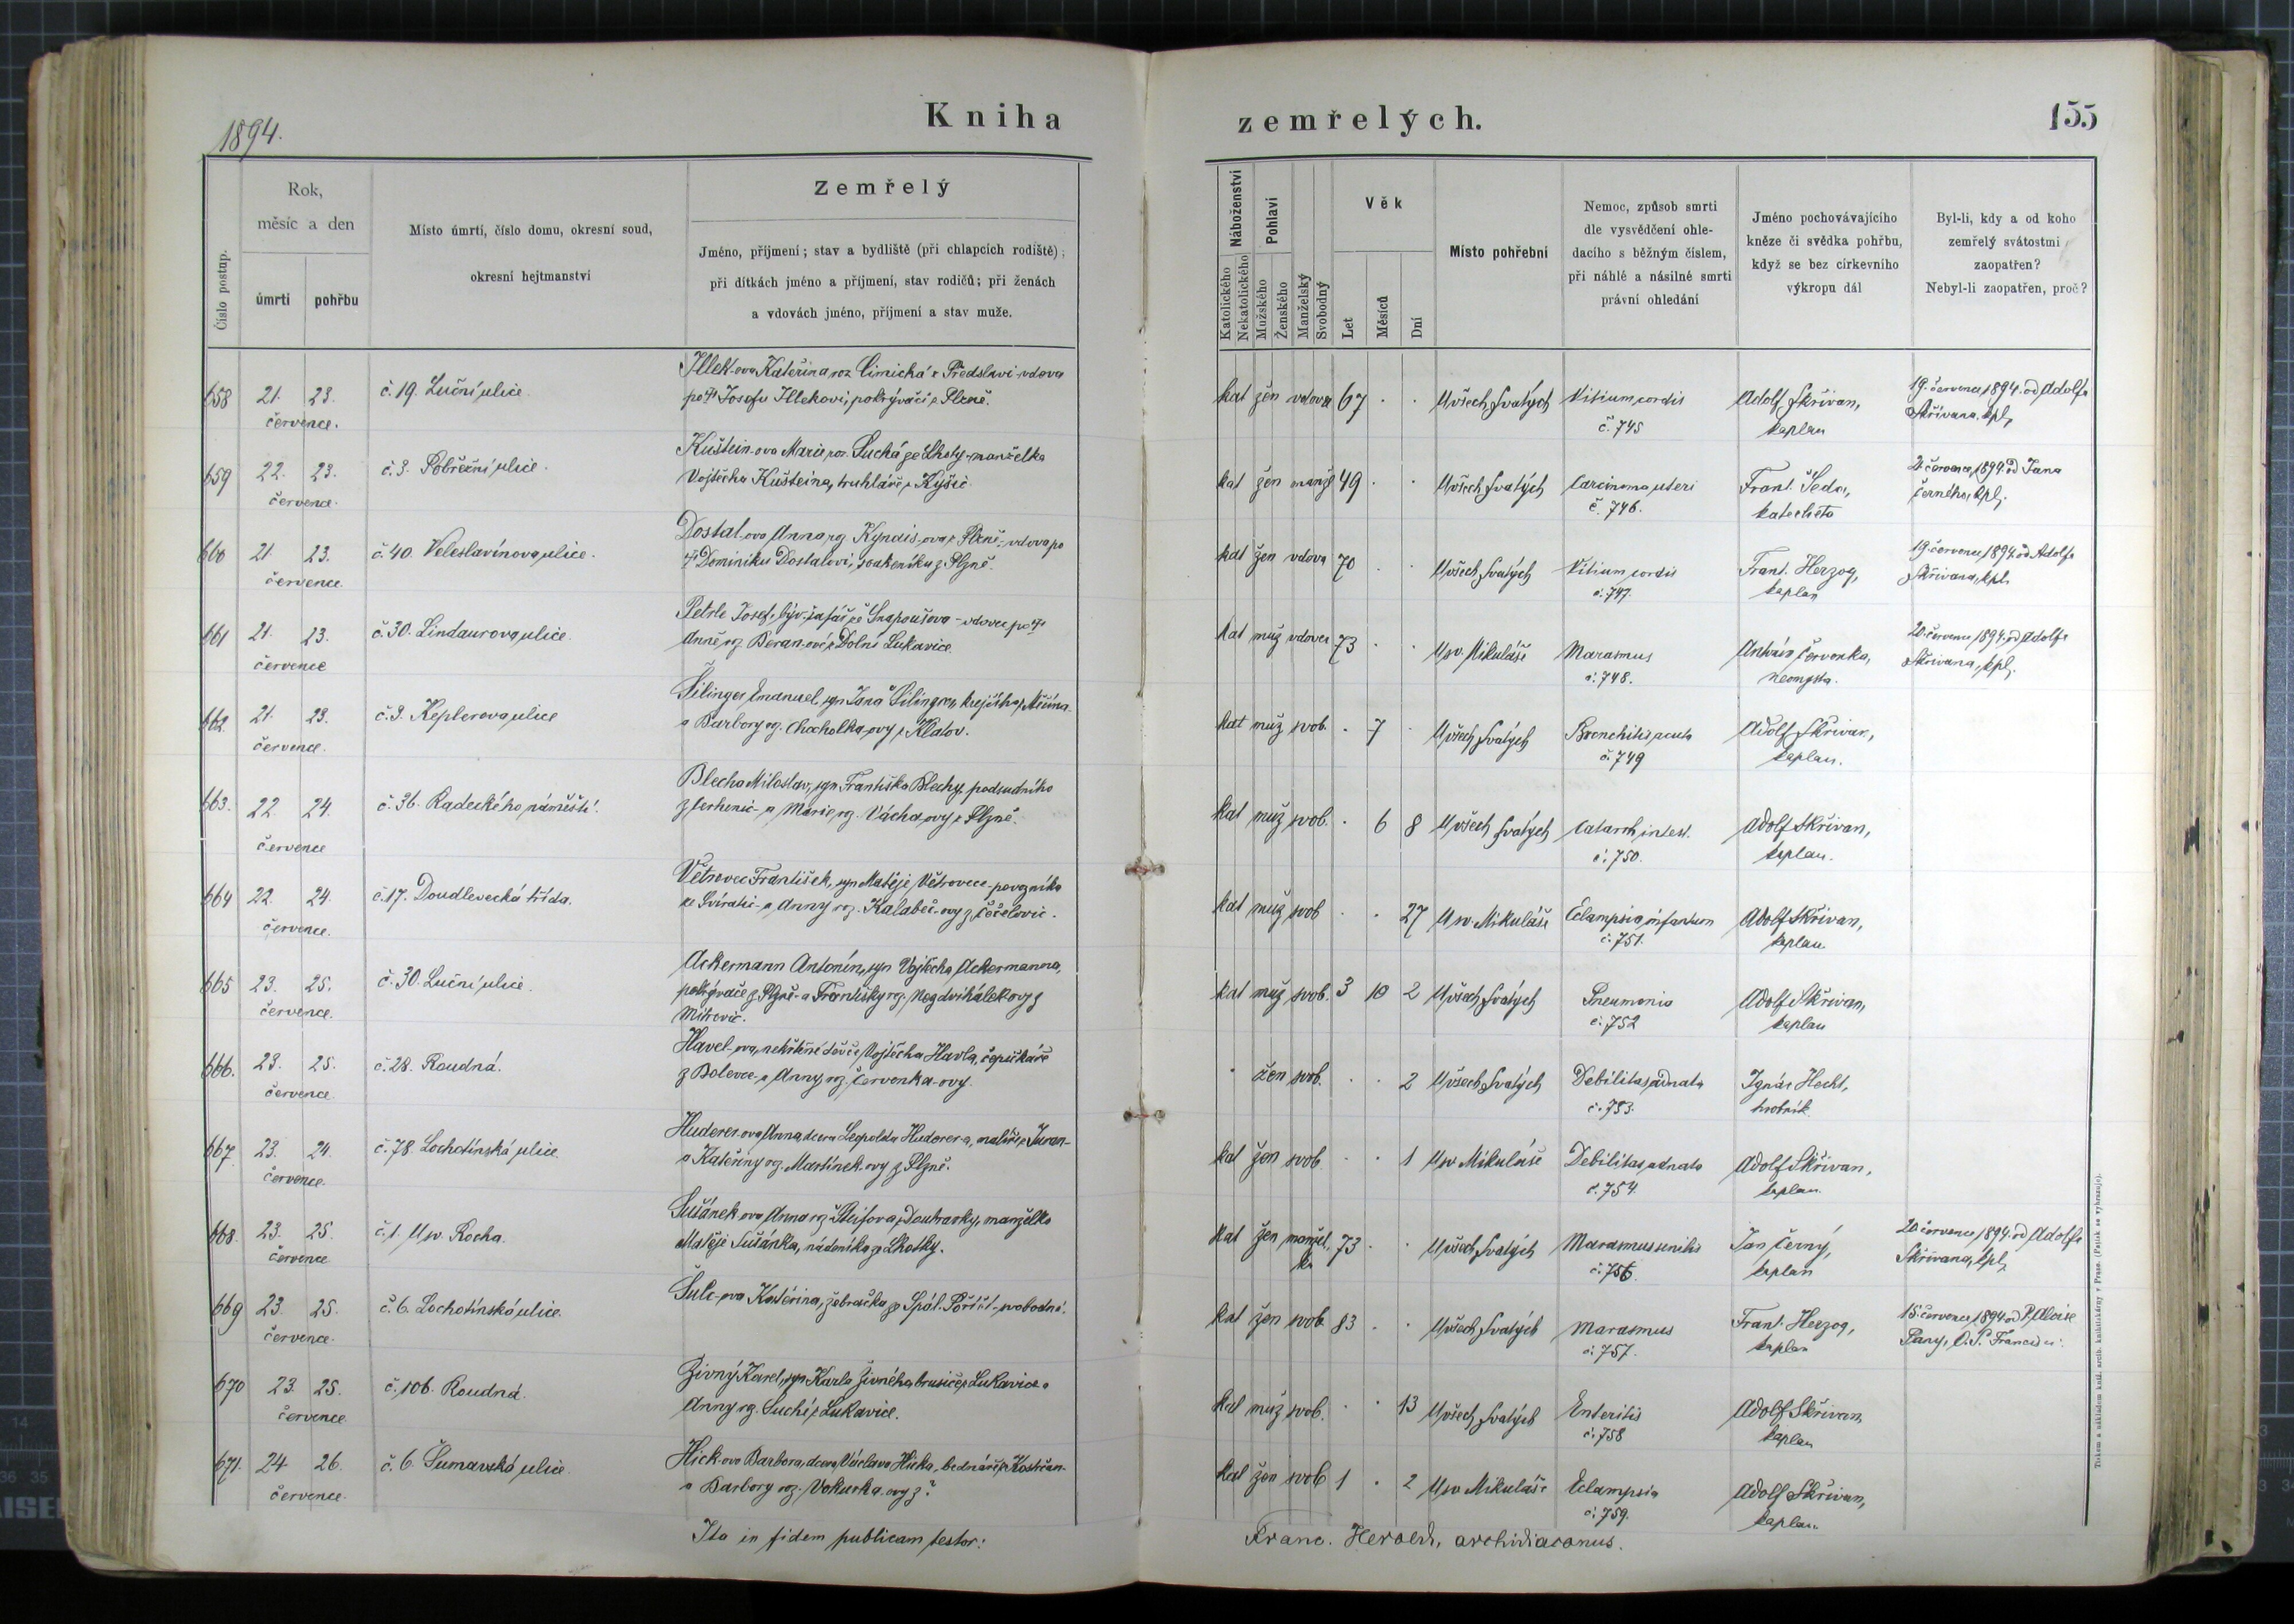 1894.
Kniha
zemřelých.
155
Číslo postup.
Rok,
měsíc a den
úmrtí
pohřbu
Místo úmrtí, číslo domu, okresní soud,
okresní hejtmanství
Zemřelý
Jméno, příjmení; stav a bydliště (při chlapcích rodiště);
při dítkách jméno a příjmení, stav rodičů; při ženách
a vdovách jméno, příjmení a stav muže.
Náboženství
Katolického
Nekatolického
Pohlaví
Mužského
Ženského
Manželský
Svobodný
Věk
Let
Měsíců
Dní
Místo pohřební
Nemoc, způsob smrti
dle vysvědčení ohle-
dacího s běžným číslem,
při náhlé a násilné smrti
právní ohledání
Jméno pochovávajícího
kněze či svědka pohřbu,
když se bez církevního
výkropu dál
Byl-li, kdy a od koho
zemřelý svátostmi
zaopatřen?
Nebyl-li zaopatřen, proč?
658 21. 23. července. č. 19. Luční ulice
Illek-ova Kateřina roz. Cimická z Předslavi-vdova
po † Josefu Illekovi, pokrývači z Plzně.
kat žen vdova 67 U všech Svatých Vitium cordis č. 745 Adolf Skřivan, kaplan
19. července 1894. od Adolfa
Skřivana, kpl.
659 22. 23. července. č. 3. Pobřežní ulice.
Kuštein-ova Marie roz. Suchá ze Lhoty-manželka
Vojtěcha Kušteina, truhláře z Kyšic
kat žen manž 49 U všech Svatých Carcinoma uteri č. 746. Frant. Šeda, katecheta
21. července 1894. od Jana
Černého, kpl.
660 21. 23. července. č. 40. Veleslavínova ulice.
Dostal-ova Anna rz. z Plzně-vdova po
† Dominiku Dostalovi, soukeníku z Plzně.
kat žen vdova 70 U všech Svatých Vitium cordis č. 747. Frant. Herzog, kaplan
19. července 1894. od Adolfa
Skřivana, kpl.
661 21. 23. července č. 30. Lindaurova ulice.
Petrle Josef, býv. šafář ze Snopoušova-vdovec po †
Anně rz. Beran-ové z Dolní Lukavice.
kat muž vdovec 73 U sv. Mikuláše Marasmus č. 748. Antonín Červenka, neomysta.
20. července 1894. od Adolfa
Skřivana, kpl.
662. 21. 23. července. č. 3. Keplerova ulice
Šilinger Emanuel, syn Jana Šilingra, krejčího z
a Barbory rz. Chocholka-ovy z Klatov.
kat muž svob. 7 U všech Svatých Bronchitis acuta č. 749 Adolf Skřivan, kaplan.
663. 22. 24. července č. 36. Radeckého náměstí.
Blecha Miloslav, syn Františka Blechy, podsudního
z Cerhenic-a Marie rz. Vácha-ovy z Plzně.
kat muž svob. 6 8 U všech Svatých Catarrh. intest. č. 750. Adolf Skřivan, kaplan.
664 22. 24. července. č. 17. Doudlevecká třída.
Větrovec František, syn Matěje Větrovce-povozníka
ze -a Anny roz. Kalabeč-ovy z Čečelovic.
kat muž svob 27 U sv. Mikuláše Eclampsia infantum č. 751. Adolf Skřivan, kaplan
665 23. 25. července. č. 30. Luční ulice.
Ackermann Antonín, syn Vojtěcha Ackermanna,
pokrývače z Plzně-a Františky rz. Nezdvihálek-ovy z
Mitrovic.
kat muž svob. 3 10 2 U všech Svatých Pneumonia č. 752 Adolf Skřivan, kaplan
666. 23. 25. července. č. 28. Roudná.
Havel-ova, nekřtěné děvče, Vojtěcha Havla, čepičkáře
z Bolevce-a Anny rz. Červenka-ovy.
žen svob. 2 U všech Svatých Debilitas adnata č. 753. Ignác Hecht, hrobník.
667. 23. 24. července. č. 78. Lochotínská ulice.
Huderer-ova Anna, dcera Leopolda Huderera, malíře z
a Kateřiny rz. Martínek-ovy z Plzně.
kat žen svob 1 U sv. Mikuláše Debilitas adnata č. 754. Adolf Skřivan, kaplan.
668. 23. 25. července č. 1. U sv. Rocha.
Sušánek-ova Anna rz. Štěifova z Doubravky, manželka
Matěje Sušánka, nádeníka ze Lhotky.
kat žen manžel-ka 73 U všech Svatých Marasmus senilis č. 756. Jan Černý, kaplan
20. července 1894. od Adolfa
Skřivana, kpl.
669 23. 25. července. č. 6. Lochotínská ulice.
Šulc-ova Kateřina, žebračka ze Spál. Poříčí-svobodná.
kat žen svob. 83 U všech Svatých Marasmus č. 757. Frant. Herzog, kaplan
15. července 1894. od P. Aloise
Pany, O. S. Francisci.
670 23. 25. července č. 106. Roudná.
Živný Karel, syn Karla Živného, brusiče z Lukavice a
Anny rz. Suché z Lukavice.
kat muž svob. 13 U všech Svatých Enteritis č. 758 Adolf Skřivan, kaplan
671. 24. 26. července. č. 6. Šumavská ulice.
Hick-ova Barbora, dcera Václava Hicka, bednáře z
a Barbory roz. Vokurka-ovy z ?
kat žen svob 1 2 U sv. Mikuláše Eclampsia č. 759. Adolf Skřivan, kaplan.
Ita in fidem publicam testor:
Franc. Herold, archidiaconus.